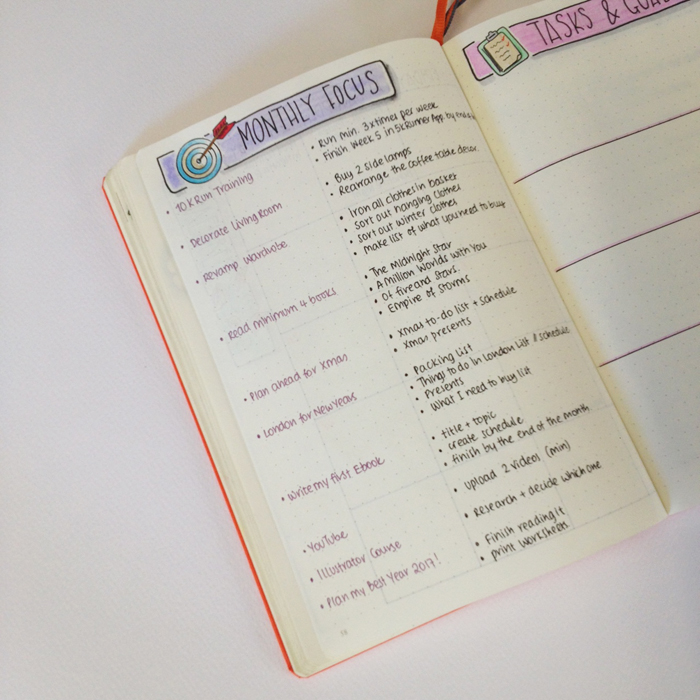 MONTHLY FOCUS
• 10K Run Training
• Run min. 3x times per week
• Finish Week 5 in 5K Runner App by
• Decorate Living Room
• Buy 2 side lamps
• Rearrange the coffee table decor
• Revamp Wardrobe
• Iron all clothes in basket
• sort out hanging clothes
• sort out winter clothes
• make list of what you need to buy
• Read minimum 4 books
• The Midnight Star
• A Million Worlds with You
• Of fire and Stars.
• Empire of Storms
• Plan ahead for Xmas
• Xmas to-do list + schedule
• Xmas presents
• London for New Years
• Packing List
• Things to do in London List & schedule
• Presents
• What I need to buy list
• Write my first Ebook
• title + topic
• create schedule
• finish by the end of the month
• YouTube
• upload 2 videos (min)
• Illustrator Course
• Research + decide which one
• Plan my Best Year 2017!
• Finish reading it
• print worksheets
TASKS & GOALS